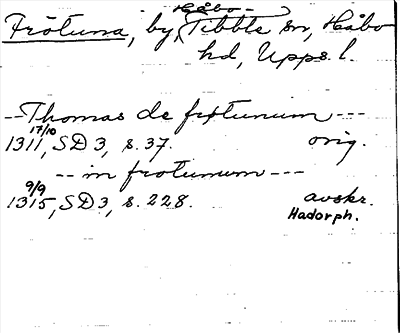 Håbo-
Frötuna, by, Tibble sn, Håbo
hd, Upps. l.
-- Thomas de frøtunum ---
1311 17/10, SD 3, s. 37. orig.
-- in frotumum ---
1315 9/9, SD 3, s. 228. avskr.
Hadorph.